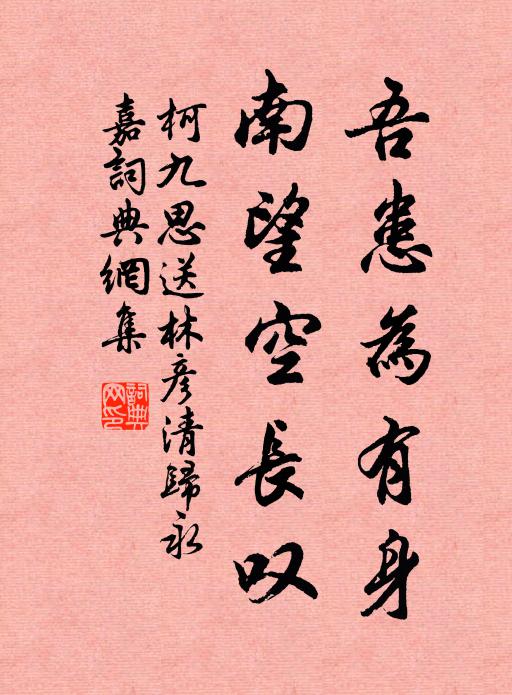 吾患為有身
南望空長叹
柯九思送林彦清歸永
嘉詞典網集
詞典
网印